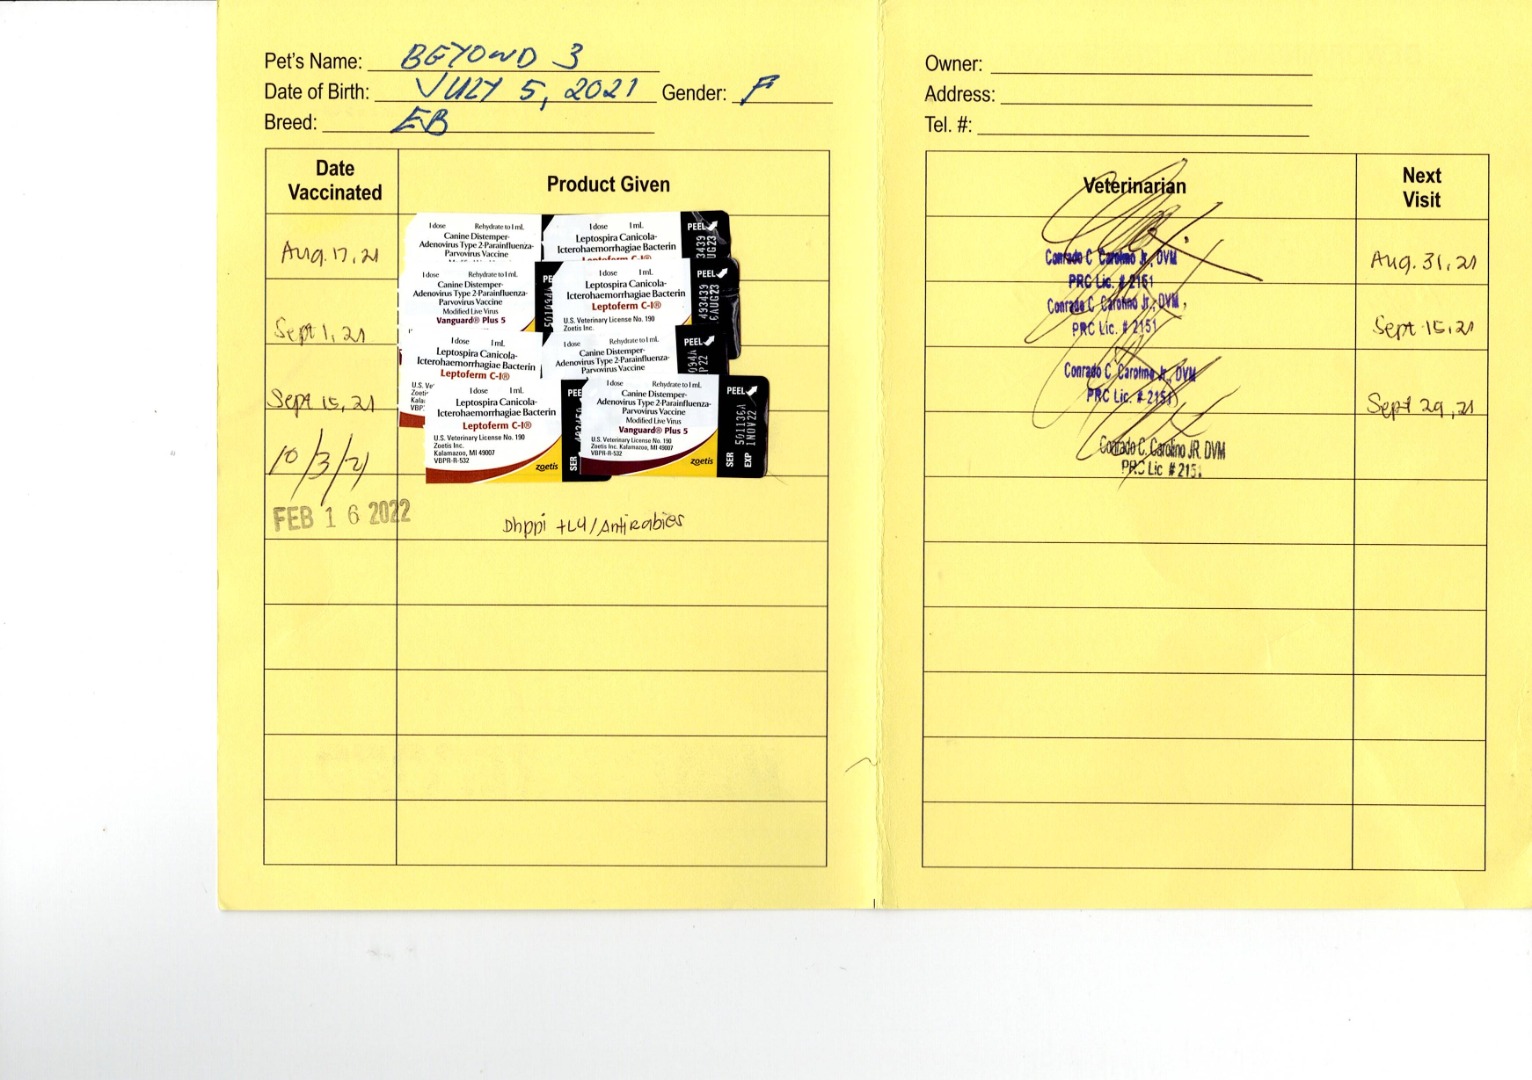 Pet's Name: BEYOND 3
Date of Birth: JULY 5, 2021 Gender: F
Breed: EB
Owner:
Address:
Tel. #:
Date Vaccinated
Product Given
Veterinarian
Next Visit
Aug. 17, 21
1 dose Rehydrate to 1 mL
Canine Distemper-
Adenovirus Type 2-Parainfluenza-
Parvovirus Vaccine
1 dose 1 mL
Leptospira Canicola-
Icterohaemorrhagiae Bacterin
Leptoferm C-I®
PEEL
3439
UG23
Conrado C. Carolino Jr., DVM
PRC Lic. # 2151
Aug. 31, 21
Sept 1, 21
1 dose Rehydrate to 1 mL
Canine Distemper-
Adenovirus Type 2-Parainfluenza-
Parvovirus Vaccine
Modified Live Virus
Vanguard® Plus 5
PE
1 dose 1 mL
Leptospira Canicola-
Icterohaemorrhagiae Bacterin
Leptoferm C-I®
U.S. Veterinary License No. 190
Zoetis Inc.
PEEL
493439
6AUG23
Conrado C. Carolino Jr., DVM
PRC Lic. # 2151
Sept 15, 21
Sept 15, 21
1 dose 1 mL
Leptospira Canicola-
Icterohaemorrhagiae Bacterin
Leptoferm C-I®
U.S. Ve
Zoeti
Kala
VBP
1 dose Rehydrate to 1 mL
Canine Distemper-
Adenovirus Type 2-Parainfluenza-
Parvovirus Vaccine
PEEL
094A
P22
Conrado C. Carolino Jr., DVM
PRC Lic. # 2151
Sept 29, 21
10/3/21
1 dose 1 mL
Leptospira Canicola-
Icterohaemorrhagiae Bacterin
Leptoferm C-I®
U.S. Veterinary License No. 190
Zoetis Inc.
Kalamazoo, MI 49007
VBPR-R-532
zoetis
PEE
SER
1 dose Rehydrate to 1 mL
Canine Distemper-
Adenovirus Type 2-Parainfluenza-
Parvovirus Vaccine
Modified Live Virus
Vanguard® Plus 5
U.S. Veterinary License No. 190
Zoetis Inc. Kalamazoo, MI 49007
VBPR-R-532
zoetis
PEEL
SER 501136A
EXP 1NOV22
Conrado C. Carolino JR. DVM
PRC Lic # 2151
FEB 16 2022
Dhppi +L4/Antirabies